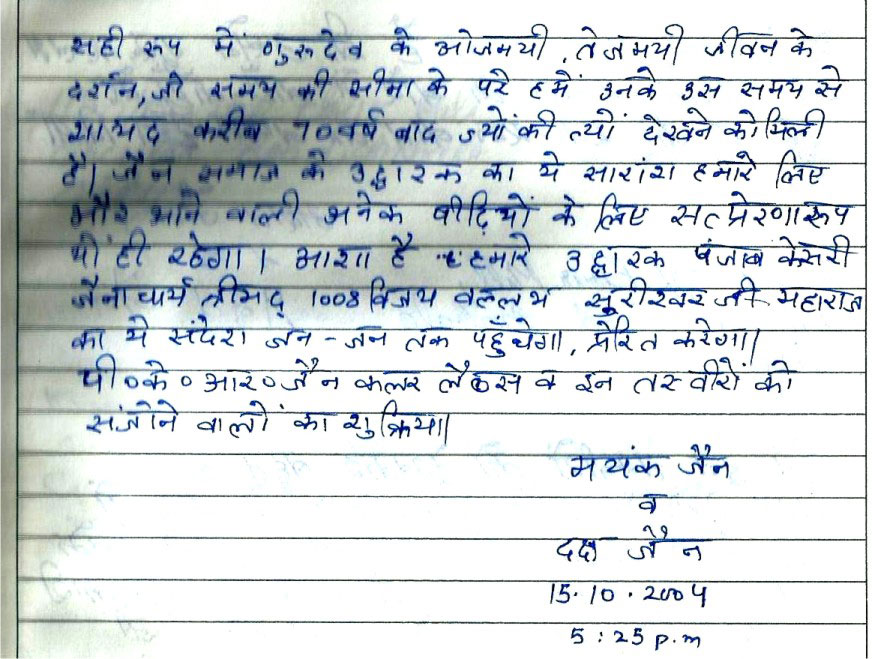 सही रूप में गुरुदेव के ओजमयी, तेजमयी जीवन के
दर्शन, जो समय की सीमा के परे हमें उनके उस समय से
शायद करीब 70 वर्ष बाद ज्यों की त्यों देखने को मिली
है। जैन समाज के उद्धारक का ये सारांश हमारे लिए
और आने वाली अनेक पीढ़ियों के लिए सत्प्रेरणा रूप
यों ही रहेगा। आशा है हमारे उद्धारक पंजाब केसरी
जैनाचार्य श्रीमद् 1008 विजय वल्लभ सुरीश्वर जी महाराज
का ये संदेश जन-जन तक पहुँचेगा, प्रेरित करेगा।
पी०के०आर०जैन कलर लैब्स व इन तस्वीरों को
संजोने वालों का शुक्रिया।
मयंक जैन
व
दक्ष जैन
15.10.2004
5:25 p.m